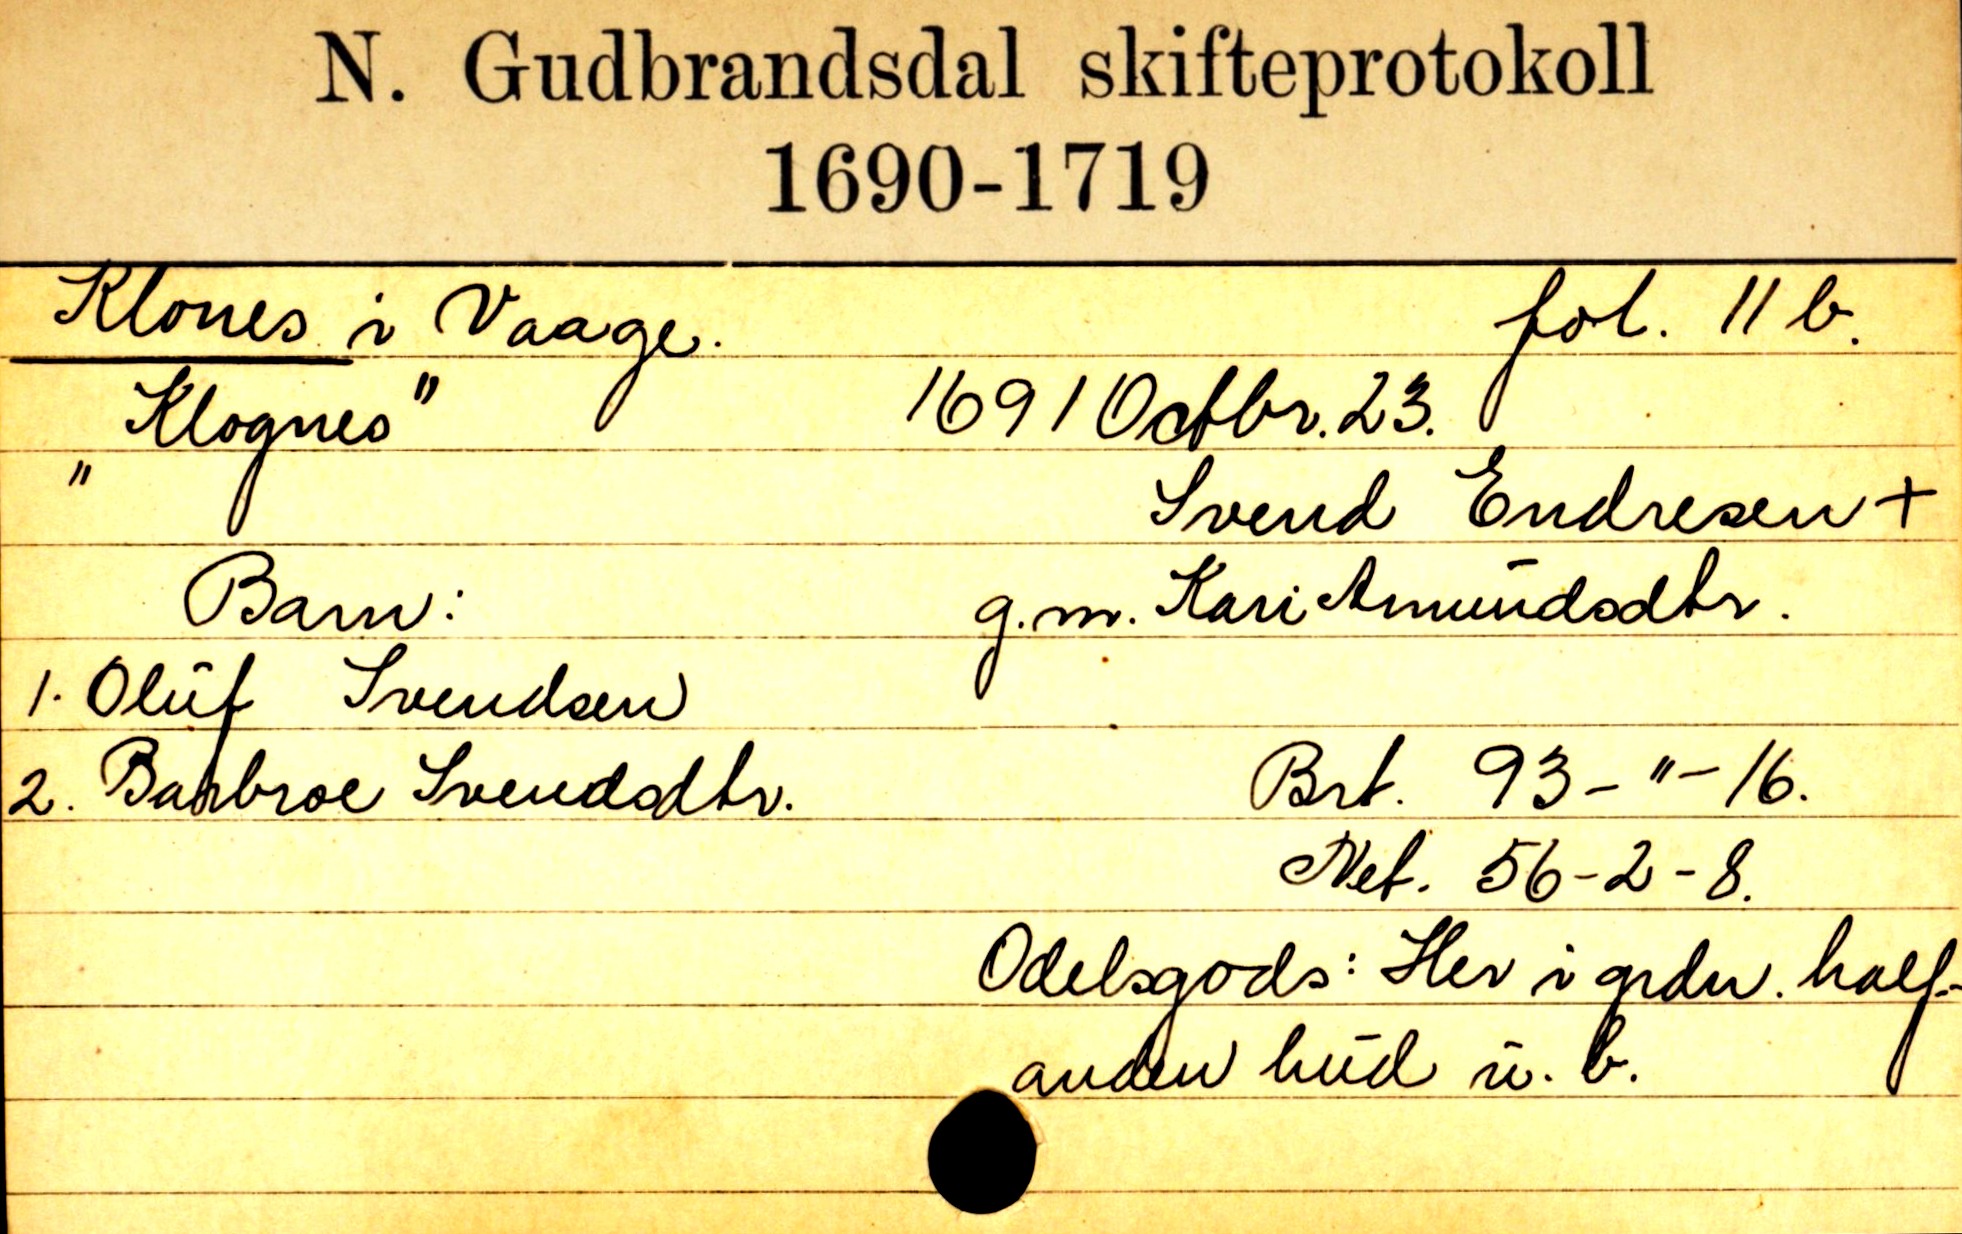 N. Gudbrandsdal skifteprotokoll
1690-1719
Klones i Vaage. fol. 11 b.
"Klognes" 1691 Octbr. 23.
Svend Endresen +
Barn: g.m. Kari Amundsdtr.
1. Oluf Svendsen
2. Barbroe Svendsdtr. Brt. 93-"-16.
Net. 56-2-8.
Odelsgods: Her i grdn. half-
anden hud u. b.